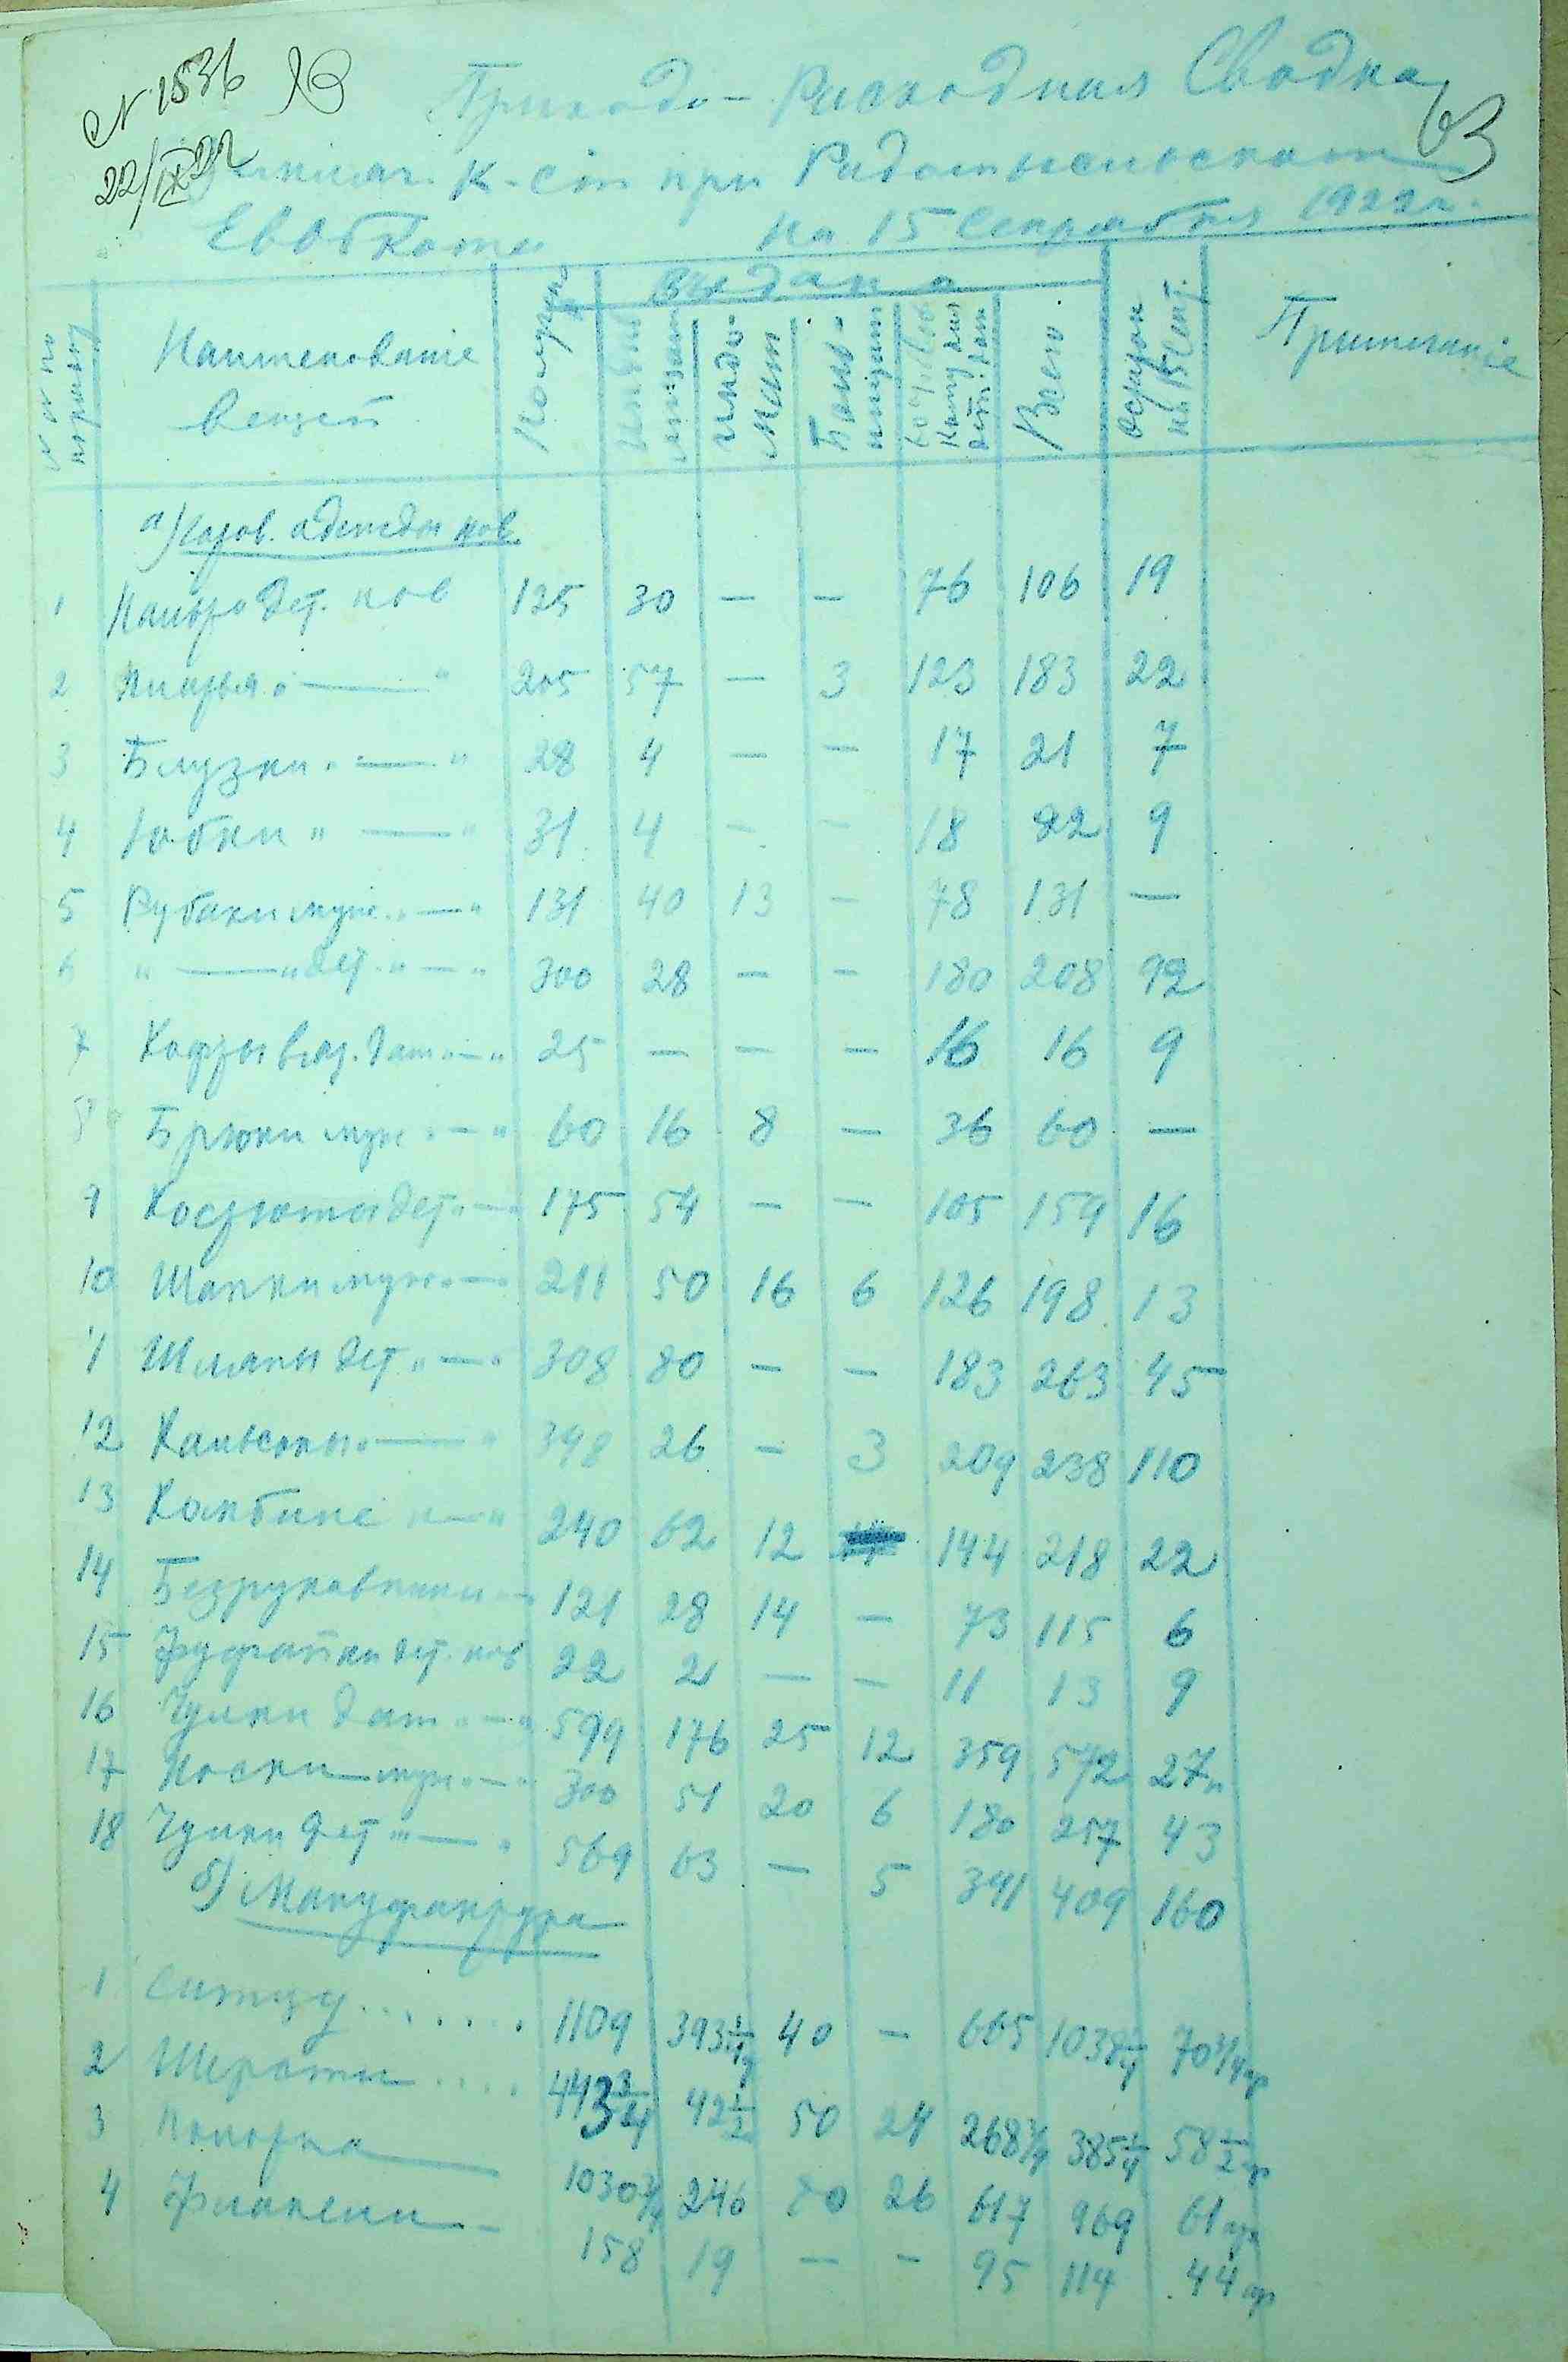 N 1536
22/IX 22
63
Приходо-Расходная Сводка
К-сіи при Радомысльском
Евобкоме на 15 Сентября 1922 г.
№ № по порядку
Наименованіе вещей
Получено
Выдано
Индо-
Боль-
Всего
Остаток на 15 Сент.
Примечаніе
а) Готов. одежды нов.
1 Пальто дет. нов 125 30 — — 76 106 19
2 Платья " — " 205 57 — 3 123 183 22
3 Блузки " — " 28 4 — — 17 21 7
4 Юбки " — " 31 4 - - 18 22 9
5 Рубахи муж. " — " 131 40 13 - 78 131 —
6 " — " дет. " — " 300 28 — - 180 208 92
7 Кофты вяз. дам " — " 25 — — — 16 16 9
8 Брюки муж " — " 60 16 8 — 36 60 —
9 Костюмы дет. " — " 175 54 — — 105 159 16
10 Шапки муж. " — " 211 50 16 6 126 198 13
11 Шляпы дет. " — " 308 80 — — 183 263 45
12 Кальсоны " — " 398 26 - 3 209 238 110
13 Комбине " — " 240 62 12 144 218 22
14 Безрукавники " — 121 28 14 — 73 115 6
15 Фуфайки дет. нов 22 2 — - 11 13 9
16 Чулки дам " — " 599 176 25 12 359 572 27 п
17 Носки муж. " — " 300 51 20 6 180 257 43
18 Чулки дет " — " 569 63 — 5 341 409 160
б) Мануфактура
1 Ситцу ....... 1109 393 1/4 40 — 665 1038 1/4 70 3/4 ар
2 Шерсти .... 443 3/4 42 1/2 50 24 268 3/4 385 1/4 58 1/2 ар
3 1030 3/4 246 80 26 617 969 61 ар
4 Фланели - 158 19 — - 95 114 44 ар